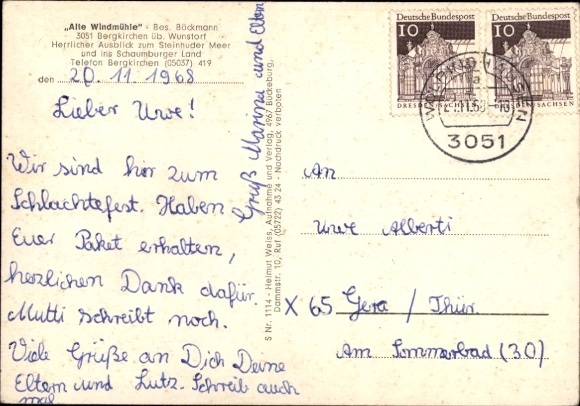 „Alte Windmühle" · Bes. Böckmann
3051 Bergkirchen üb. Wunstorf
Herrlicher Ausblick zum Steinhuder Meer
und ins Schaumburger Land
Telefon Bergkirchen (05037) 419
den 20. 11. 1968
Lieber Uwe!
Wir sind hir zum
Schlachtefest. Haben
Euer Paket erhalten,
herzlichen Dank dafür.
Mutti schreibt noch.
Viele Grüße an Dich Deine
Eltern und Lutz. Schreib auch
mal
Gruß Marina und Eltern
S Nr. 1114 · Helmut Weiss, Aufnahme und Verlag, 4967 Bückeburg,
Dammstr. 10, Ruf (05722) 43 24 · Nachdruck verboten
Deutsche Bundespost
10
DRESDEN/SACHSEN
Deutsche Bundespost
10
DRESDEN/SACHSEN
3051
An
Uwe Alberti
X 65 Gera / Thür.
Am Sommerbad (30)